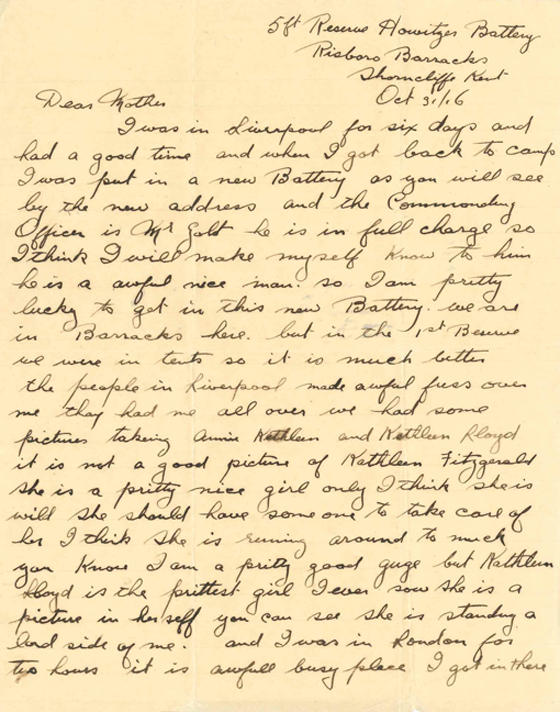 5ft Reserve Howitzer Battery
Risboro Barracks
Shorncliffe Kent
Oct 31/16
Dear Mother
I was in Liverpool for six days and
had a good time and when I got back to camp
I was put in a new Battery as you will see
by the new address and the Commonding
Officer is Mr Galt he is in full charge so
I think I will make myself Know to him
he is a awful nice man. so I am pretty
lucky to get in this new Battery. we are
in Barracks here. but in the 1st Reserve
we were in tents so it is much better
the people in Liverpool made awful fuss over
me they had me all over we had some
pictures takeing Annie Kathleen and Kathleen Lloyd
it is not a good picture of Kathleen Fitzgerald
she is a pretty nice girl only I think she is
wild she should have some one to take care of
her I think she is runing around to much
you Know I am a pritty good guge but Kathleen
Lloyd is the prittest girl I ever sow she is a
picture in herself you can see she is standing a
long side of me. and I was in London for
two hours it is awfull busy place I got in there